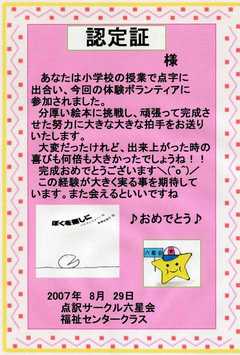 認定証
様
あなたは小学校の授業で点字に
出合い、今回の体験ボランティアに
参加されました。
分厚い絵本に挑戦し、頑張って完成さ
せた努力に大きな大きな拍手をお送り
いたします。
大変だったけれど、出来上がった時の
喜びも何倍も大きかったでしょうね！！
完成おめでとうございます＼(^o^)／
この経験が大きく実る事を期待して
います。また会えるといいですね
ぼくを探しに
♪おめでとう♪
六星会
2007年 8月 29日
点訳サークル六星会
福祉センタークラス